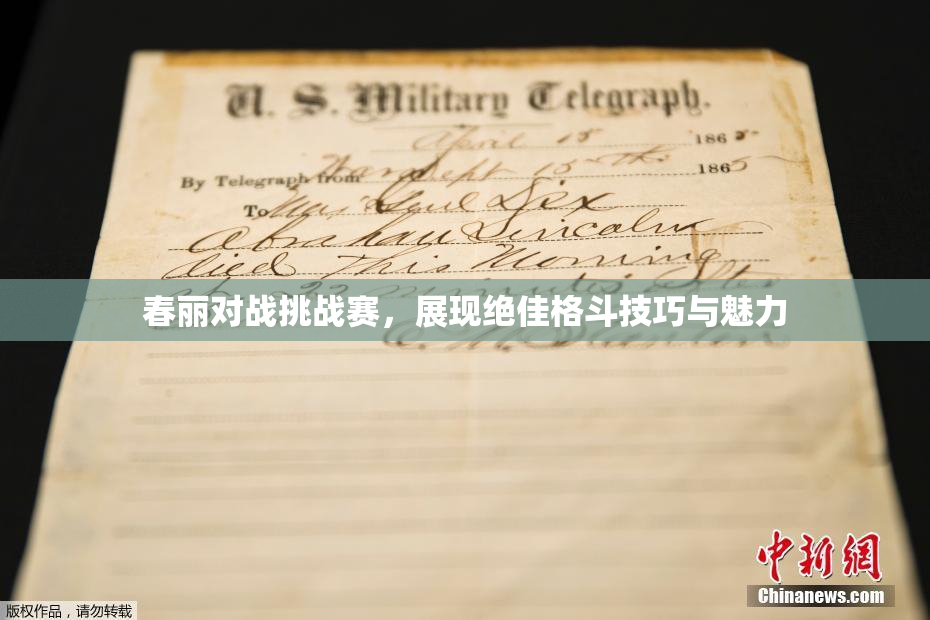 U. S. Military Telegraph.
April 15 1865
By Telegraph from War Dept 15th 1865
To Maj Genl Dix
Abraham Lincoln
died This Morning
at 22 minutes after
春丽对战挑战赛，展现绝佳格斗技巧与魅力
E. M. Stanton
中新网
Chinanews.com
版权作品，请勿转载